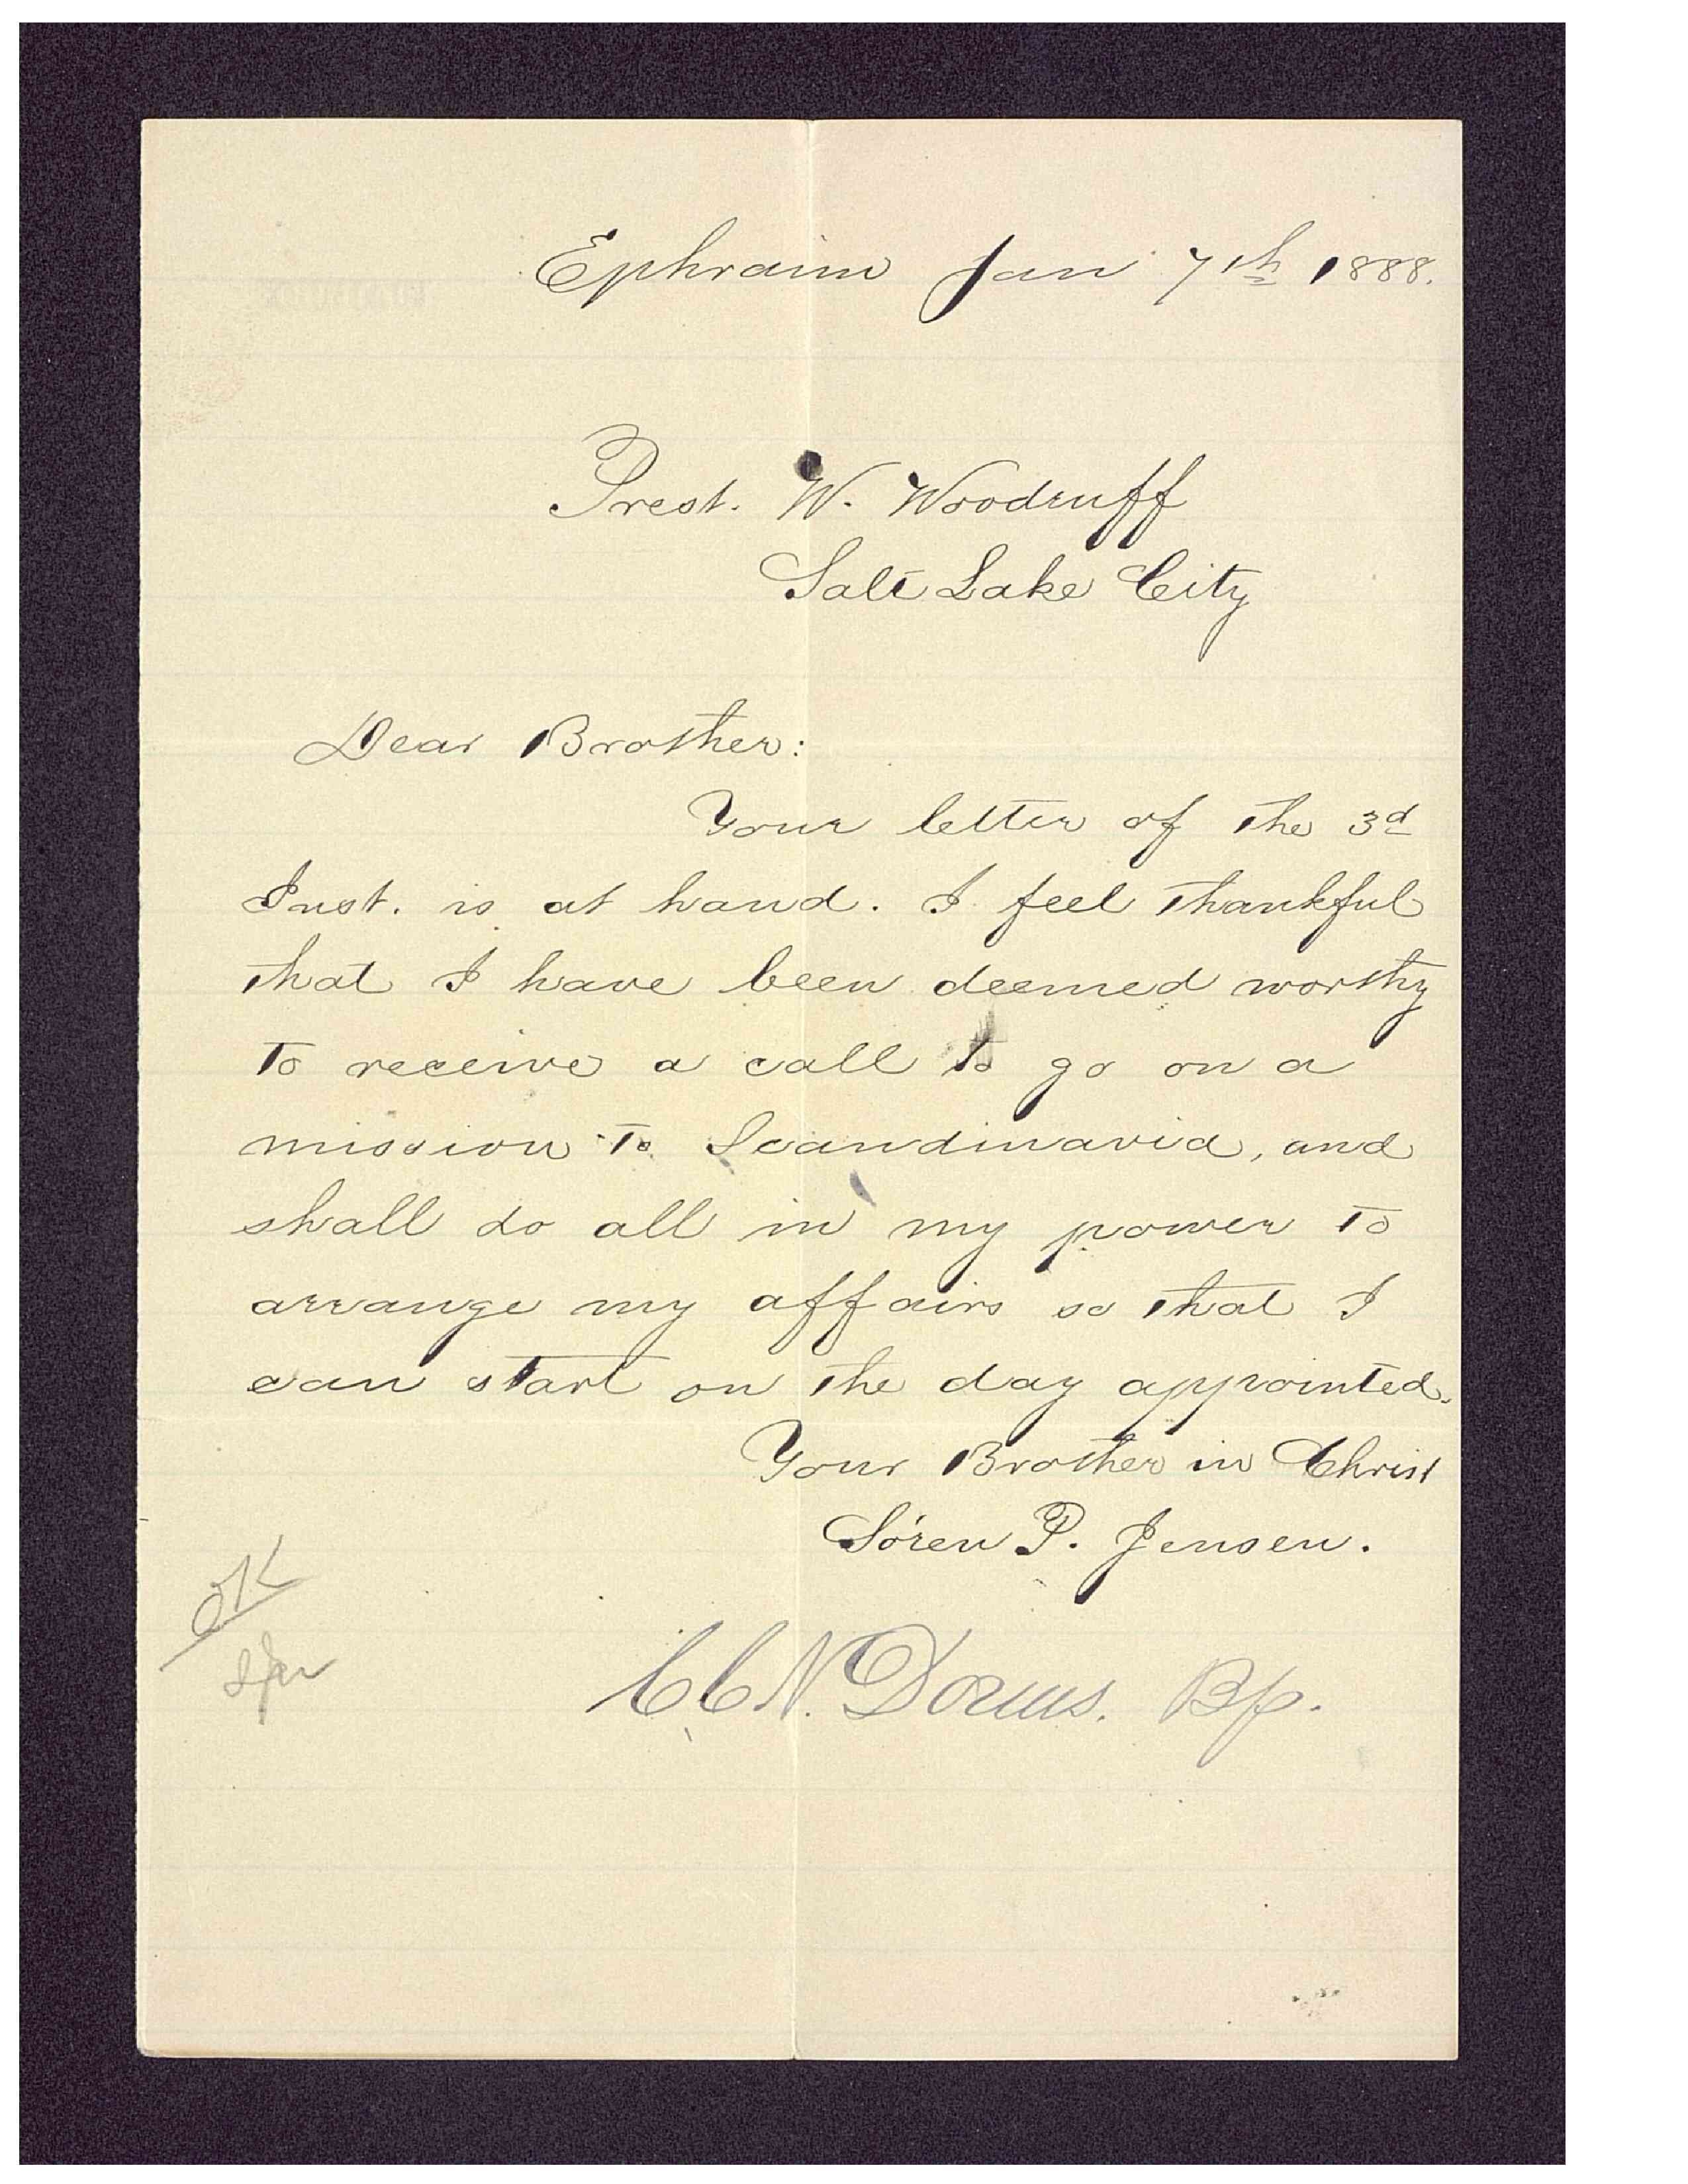 Ephraim Jan 7th 1888.
Prest. W. Woodruff
Salt Lake City
Dear Brother:
Your letter of the 3d
Inst. is at hand. I feel thankful
that I have been deemed worthy
to receive a call to go on a
mission to Scandinavia, and
shall do all in my power to
arrange my affairs so that I
can start on the day appointed.
Your Brother in Christ
Sören P. Jensen.
OK
C. C. N. Dorius. Bp.